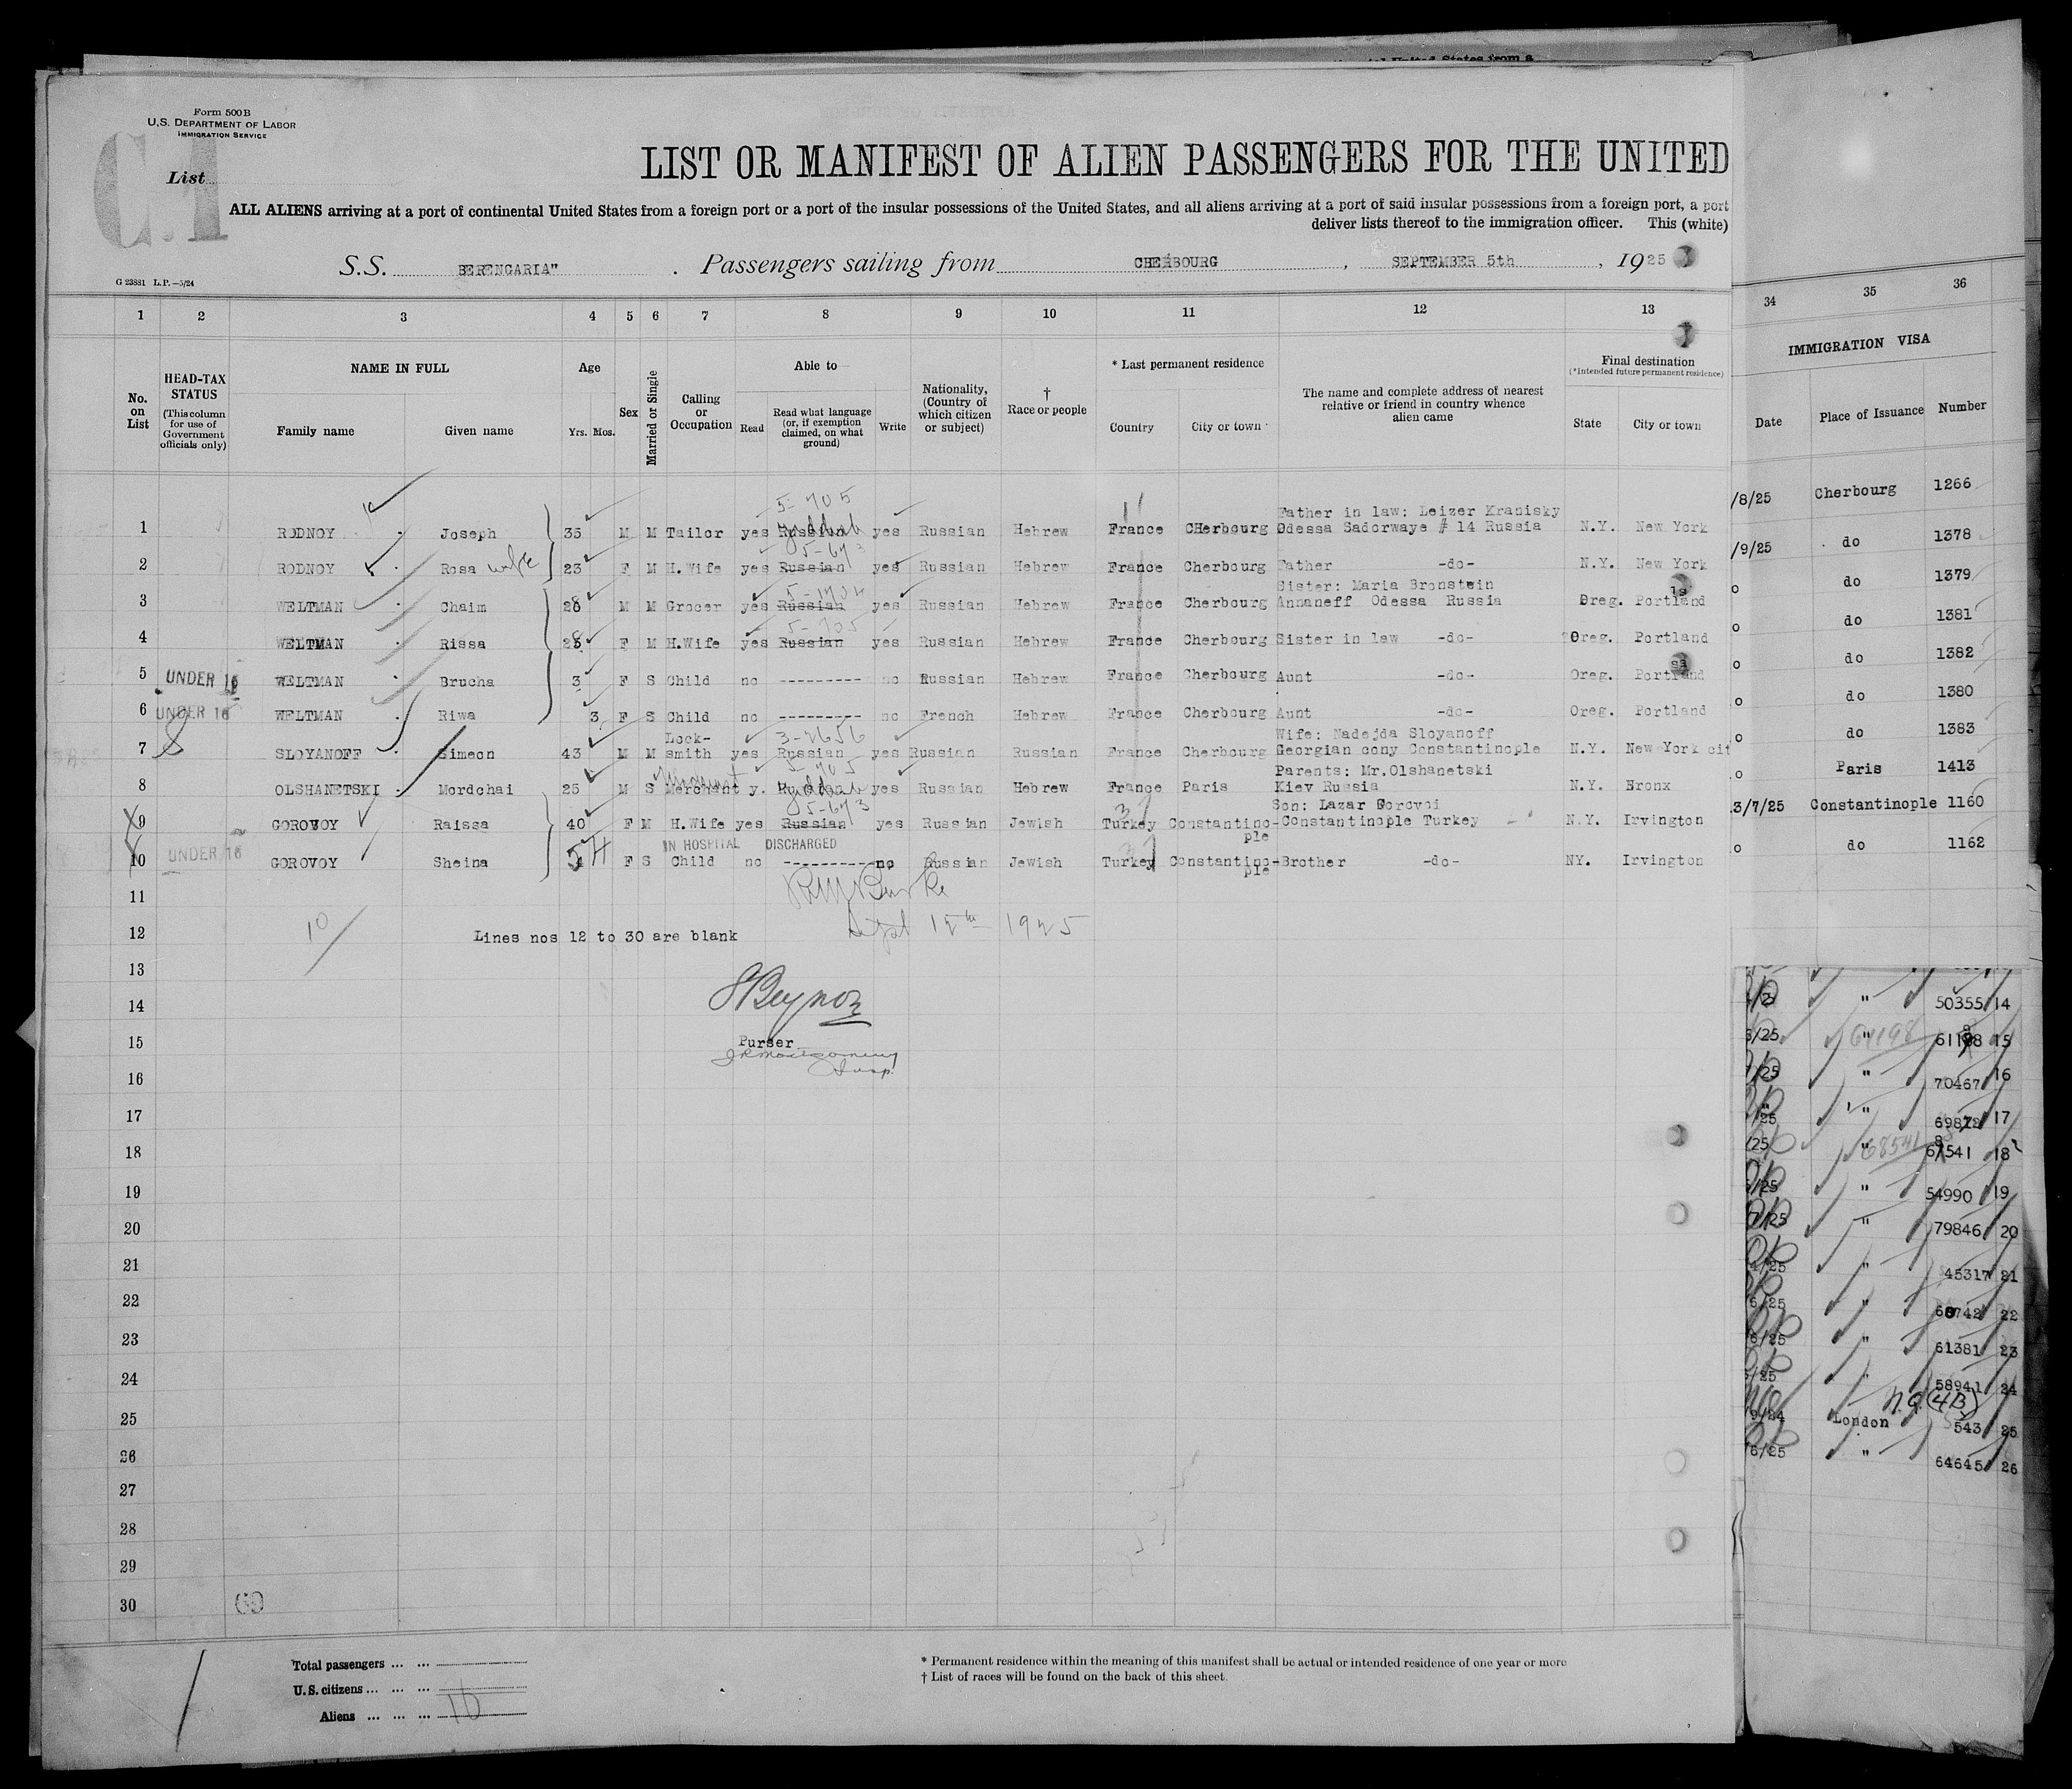 Form 500B
U.S. DEPARTMENT OF LABOR
IMMIGRATION SERVICE
C.1
List
LIST OR MANIFEST OF ALIEN PASSENGERS FOR THE UNITED
ALL ALIENS arriving at a port of continental United States from a foreign port or a port of the insular possessions of the United States, and all aliens arriving at a port of said insular possessions from a foreign port, a port
deliver lists thereof to the immigration officer. This (white)
S.S. BERENGARIA" . Passengers sailing from CHERBOURG , SEPTEMBER 5th , 1925
G 23881 L.P.—5/24
1 2 3 4 5 6 7 8 9 10 11 12 13 34 35 36
No. on List
HEAD-TAX STATUS (This column for use of Government officials only)
NAME IN FULL
Family name Given name
Age
Yrs. Mos.
Sex
Married or Single
Calling or Occupation
Able to
Read Read what language (or, if exemption claimed, on what ground) Write
Nationality, (Country of which citizen or subject)
† Race or people
* Last permanent residence
Country City or town
The name and complete address of nearest relative or friend in country whence alien came
Final destination
(*Intended future permanent residence)
State City or town
IMMIGRATION VISA
Date Place of Issuance Number
5-705
Father in law: Leizer Kranisky
1 RODNOY Joseph 35 M M Tailor yes Russian Yiddish yes Russian Hebrew France CHerbourg Odessa Sadorwaye # 14 Russia N.Y. New York /8/25 Cherbourg 1266
5-673
2 RODNOY Rosa wife 23 F M H.Wife yes Russian yes Russian Hebrew France Cherbourg Father -do- N.Y. New York /9/25 do 1378
5-1704 Sister: Maria Bronstein
3 WELTMAN Chaim 28 M M Grocer yes Russian yes Russian Hebrew France Cherbourg Annaneff Odessa Russia Oreg. Portland o do 1379
5-705
4 WELTMAN Rissa 28 F M H.Wife yes Russian yes Russian Hebrew France Cherbourg Sister in law -do- Oreg. Portland o do 1381
5 UNDER 16 WELTMAN Brucha 3 F S Child no --------- no Russian Hebrew France Cherbourg Aunt -do- Oreg. Portland o do 1382
6 UNDER 16 WELTMAN Riwa 3 F S Child no --------- no French Hebrew France Cherbourg Aunt -do- Oreg. Portland o do 1380
Lock- 3-2656 Wife: Nadejda Sloyanoff
7 SLOYANOFF Simeon 43 M M smith yes Russian yes Russian Russian France Cherbourg Georgian cony Constantinople N.Y. New York cit o do 1383
5-705 Parents: Mr.Olshanetski
8 OLSHANETSKI Mordchai 25 M S Merchant y. Yiddish yes Russian Hebrew France Paris Kiev Russia N.Y. Bronx o Paris 1413
5-673 Son: Lazar Gorovoi
9 GOROVOY Raissa 40 F M H.Wife yes Russian yes Russian Jewish Turkey Constantino-ple Constantinople Turkey N.Y. Irvington 3/7/25 Constantinople 1160
IN HOSPITAL DISCHARGED
10 UNDER 16 GOROVOY Sheina F S Child no ---------- no Russian Jewish Turkey Constantino-ple Brother -do- NY. Irvington o do 1162
11 RM Burke
12 10 Lines nos 12 to 30 are blank Sept 12th 1925
13
14 " 50355 14
SBeynon
15 /25 64198 " 15
Purser
JR Montgomery
Insp.
16 /25 " 70467 16
17 /25 " 17
18 /25 68541 " 67541 18
19 /25 " 54990 19
20 7/25 " 79846 20
21 4/25 " 45317 21
22 6/25 " 60742 22
23 6/25 " 61381 23
24 /25 58941 24
N.Q.(4B)
25 9/24 London 543 25
26 6/25 " 64645 26
27
28
29
30
69
Total passengers ... ...
U.S. citizens ... ... ...
Aliens ... ... ... 10
* Permanent residence within the meaning of this manifest shall be actual or intended residence of one year or more
† List of races will be found on the back of this sheet.